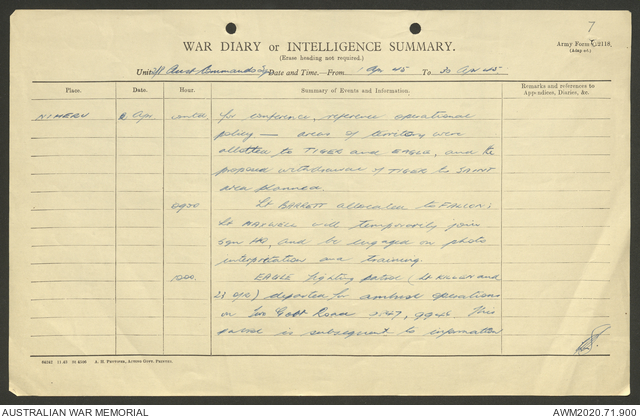 7
WAR DIARY or INTELLIGENCE SUMMARY.
(Erase heading not required.)
Army Form C.2118.
(Adap ed.)
Unit Aust Commando Sqn Date and Time—From 1 Apr 45 To 30 Apr 45
Place. Date. Hour. Summary of Events and Information. Remarks and references to Appendices, Diaries, &c.
Apr contd for conference, reference operational
policy — areas of territory were
allotted to TIGER and EAGLE, and the
proposed withdrawal of TIGER to SAINT
area planned.
0900 Lt BARRETT allocated to FALCON;
Lt MAXWELL will temporarily join
Sqn HQ, and be engaged on photo
interpretation and training.
EAGLE fighting patrol (Lt and
23 ORs) departed for ambush operations
on Govt Road This
patrol is subsequent to information
A. H. Pettifer, Acting Govt. Printer.
AUSTRALIAN WAR MEMORIAL
AWM2020.71.900